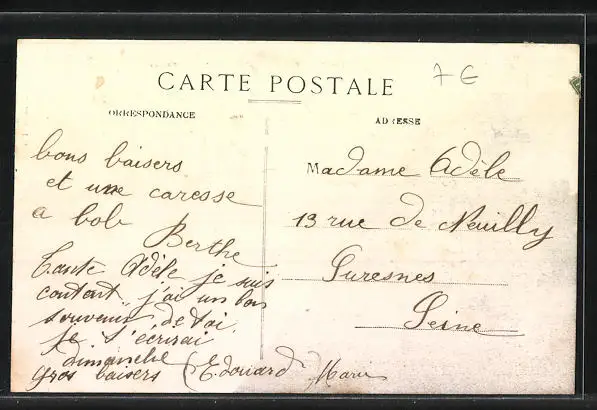 CARTE POSTALE
7 €
ORRESPONDANCE
ADRESSE
bons baisers
et une caresse
a bob
Berthe
Tante Adèle je suis
contant j'ai un bon
souvenir de toi
je t'écrirai
dimanche
gros baisers (Edouard Marie
Madame Adèle
13 rue de Neuilly
Suresnes
Seine